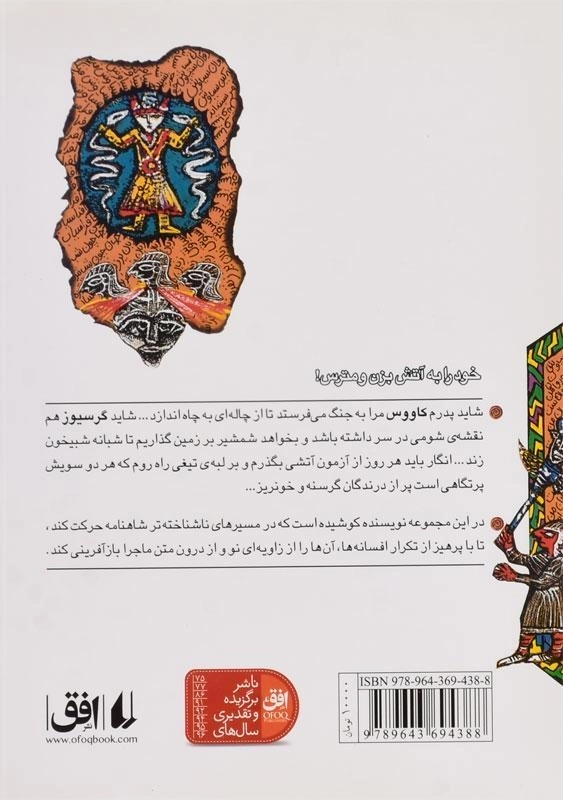 خود را به آتش بزن و مترس!
شاید پدرم کاووس مرا به جنگ می‌فرستد تا از چاله‌ای به چاه اندازد ... شاید گرسیوز هم
نقشه‌ی شومی در سر داشته باشد و بخواهد شمشیر بر زمین گذاریم تا شبانه شبیخون
زند ... انگار باید هر روز از آزمون آتشی بگذرم و بر لبه‌ی تیغی راه روم که هر دو سویش
پرتگاهی است پر از درندگان گرسنه و خونریز...
در این مجموعه نویسنده کوشیده است که در مسیرهای ناشناخته‌تر شاهنامه حرکت کند،
تا با پرهیز از تکرار افسانه‌ها، آن‌ها را از زاویه‌ای نو و از درون متن ماجرا بازآفرینی کند.
نشر افق
www.ofoqbook.com
ناشر
برگزیده
و تقدیری
سال‌های
۷۵
۷۷
۸۶
افق
OFOQ
ISBN 978-964-369-438-8
9 789643 694388
۱۰۰۰۰ تومان